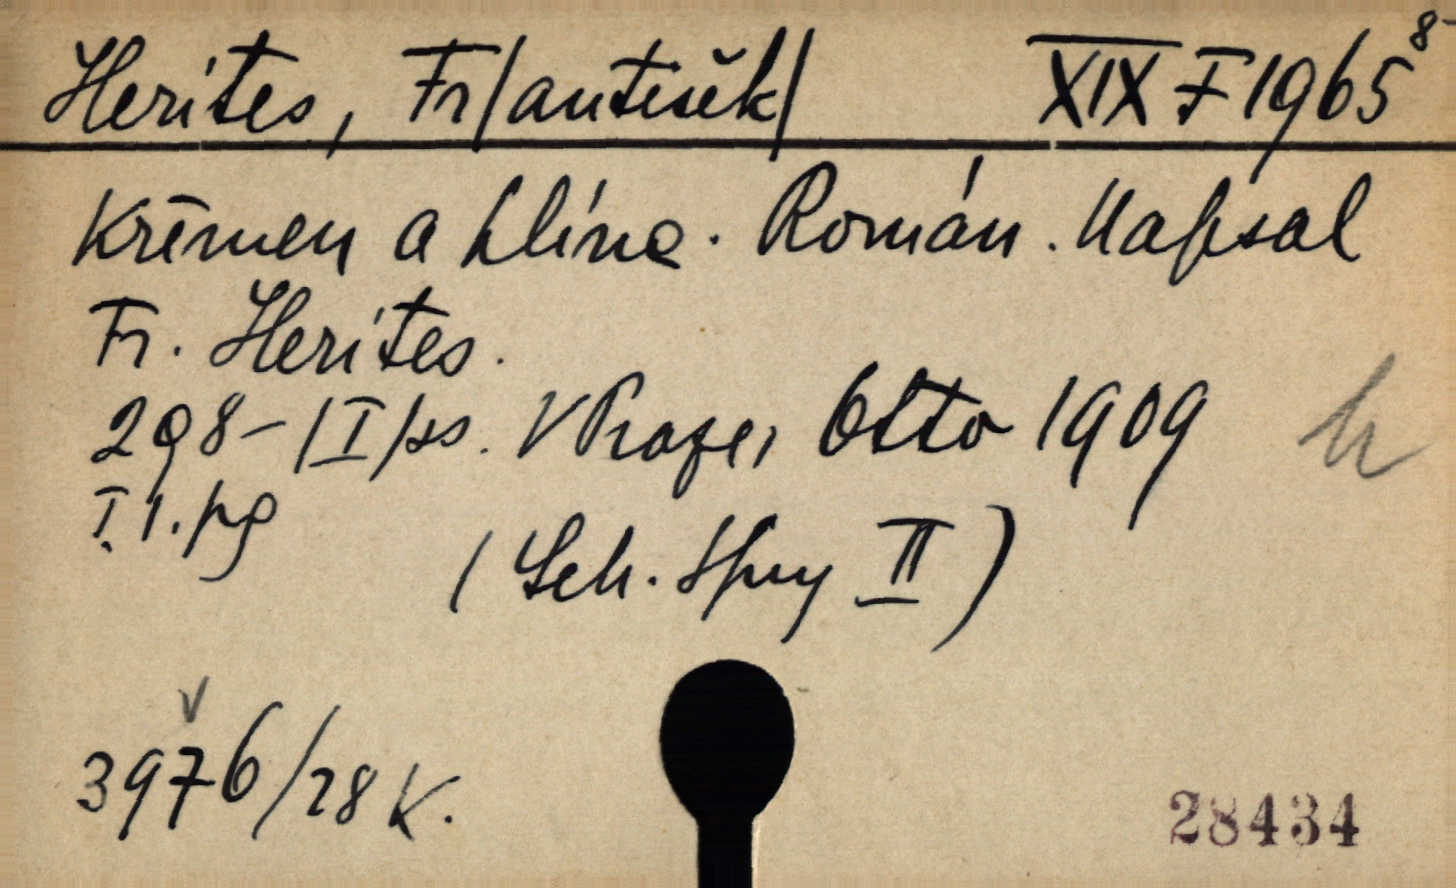 Herites, Fr/antišek/ XIX F 1965 8-
Křemen a hlína. Román. Napsal
Fr. Herites.
298-/I/ss. V Praze, Otto 1909
I. 1. pg
(Seb. Spisy II)
3976/28 K.
28434